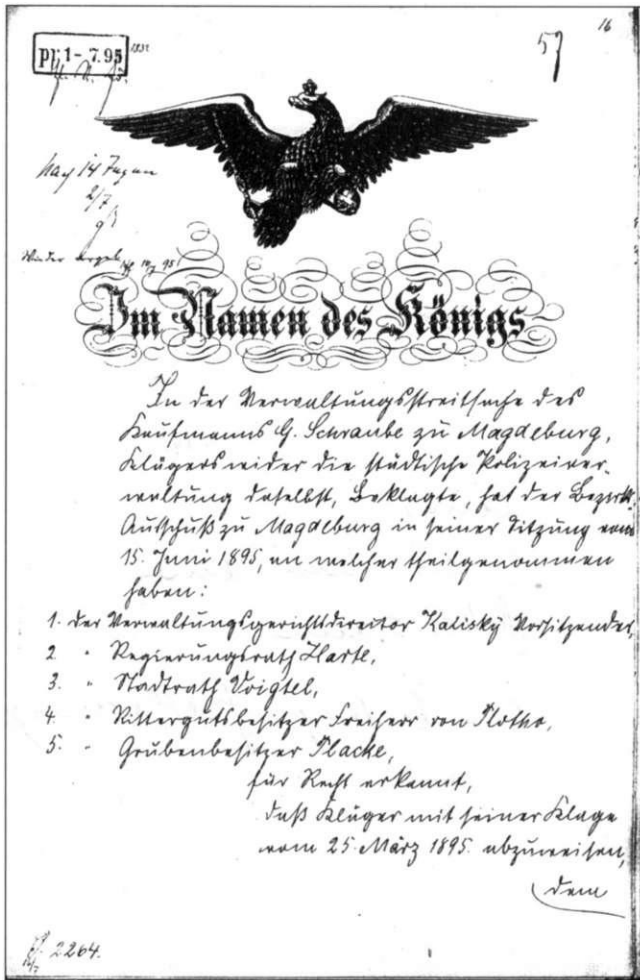 16
57
pr. 1-7.95
nach 14 Tagen
2/7
Wieder vorgel. 16/7 95
Im Namen des Königs
In der Verwaltungsstreitsache des
Kaufmanns G. Schraube zu Magdeburg,
Klägers wider die städtische Polizeiver-
waltung daselbst, Beklagte, hat der Bezirks-
Ausschuß zu Magdeburg in seiner Sitzung vom
15. Juni 1895, an welcher theilgenommen
haben:
1. der Verwaltungsgerichtsdirector Kalisky Vorsitzender,
2 " Regierungsrath Harte,
3. " Stadtrath Voigtel,
4. " Rittergutsbesitzer Freiherr von Plotho,
5. " Grubenbesitzer Placke,
für Recht erkannt,
daß Kläger mit seiner Klage
vom 25. März 1895. abzuweisen,
dem
2264.